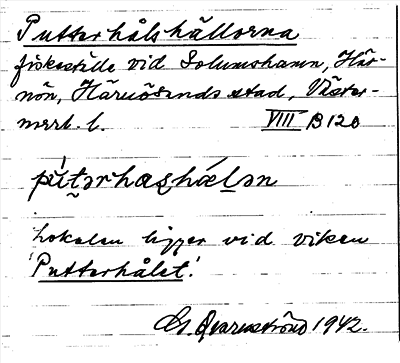 Putterhålshällorna
fiskeställe vid Solumshamn, Här-
nön, Härnösands stad, Väster-
norrl. l. VIII B 120
lokalen ligger vid viken
'Putterhålet'.
1942.